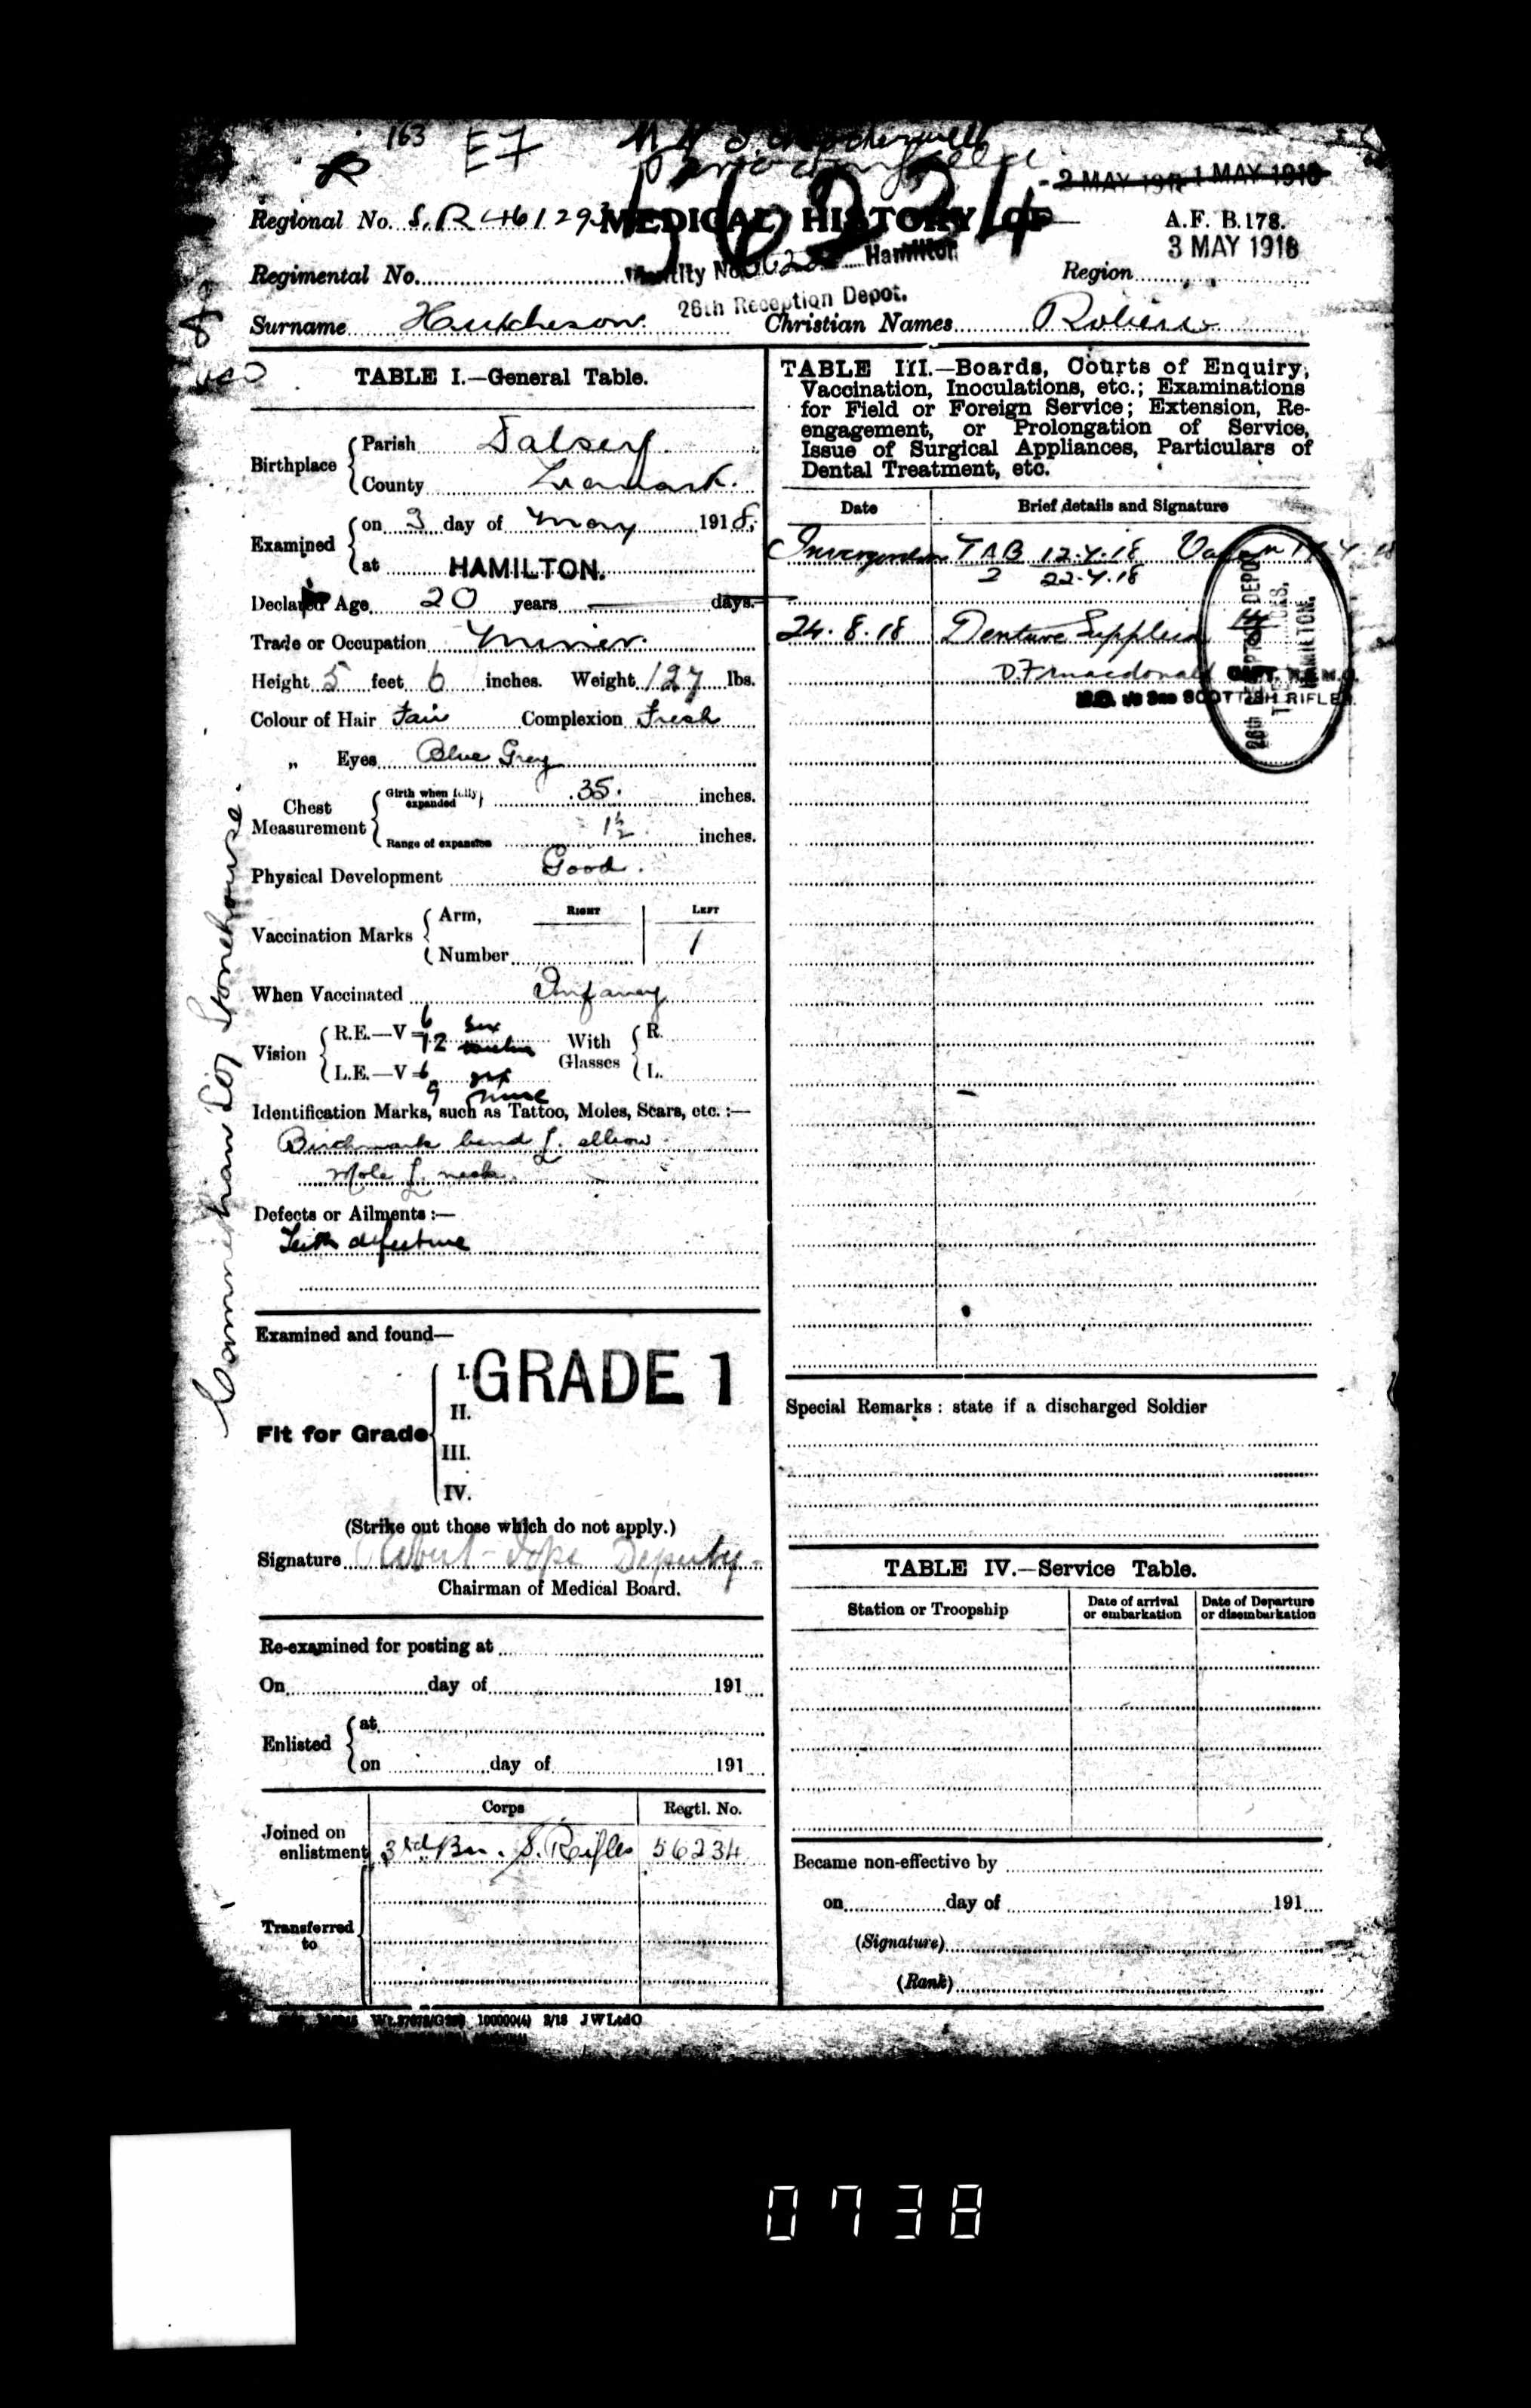 163 E7
- 2 MAY 191 1 MAY 1918
56234
Regional No. S.R 461293 MEDICAL HISTORY OF A.F. B.178.
3 MAY 1918
Regimental No. Identity No. Hamilton Region
26th Reception Depot.
Surname Hutcheson Christian Names Robert
TABLE I.—General Table.
Birthplace
Parish Dalserf
County Lanark.
Examined
on 3 day of May 1918.
at HAMILTON.
Declared Age 20 years days.
Trade or Occupation Miner.
Height 5 feet 6 inches. Weight 127 lbs.
Colour of Hair Fair Complexion Fresh
„ Eyes Blue Grey
Chest Measurement
Girth when fully expanded 35. inches.
Range of expansion 1½ inches.
Physical Development Good.
Vaccination Marks
Arm, RIGHT LEFT
Number 1
When Vaccinated Infancy
Vision
R.E.—V = 6/12 six twelve
L.E.—V = 6/9 six nine
With Glasses
R.
L.
Identification Marks, such as Tattoo, Moles, Scars, etc. :—
Birchmark bend L. elbow
Mole L. neck.
Defects or Ailments :—
Teeth defective
Examined and found—
Fit for Grade
I. GRADE 1
II.
III.
IV.
(Strike out those which do not apply.)
Signature Deputy
Chairman of Medical Board.
Re-examined for posting at
On day of 191
Enlisted
at
on day of 191
Corps Regtl. No.
Joined on enlistment 3rd Bn. S. Rifles 56234
Transferred to
TABLE III.—Boards, Courts of Enquiry,
Vaccination, Inoculations, etc.; Examinations
for Field or Foreign Service; Extension, Re-
engagement, or Prolongation of Service,
Issue of Surgical Appliances, Particulars of
Dental Treatment, etc.
Date Brief details and Signature
Invergordon TAB 12.7.18
2 22.7.18
24.8.18 Denture Supplied
D.F. Macdonald CAPT. R.A.M.C.
SCOTTISH RIFLES.
26th RECEPTION DEPOT
HAMILTON.
Special Remarks : state if a discharged Soldier
TABLE IV.—Service Table.
Station or Troopship
Date of arrival or embarkation
Date of Departure or disembarkation
Became non-effective by
on day of 191
(Signature)
(Rank)
10000(4) 3/18 J W Ltd
Stonehouse.
0738